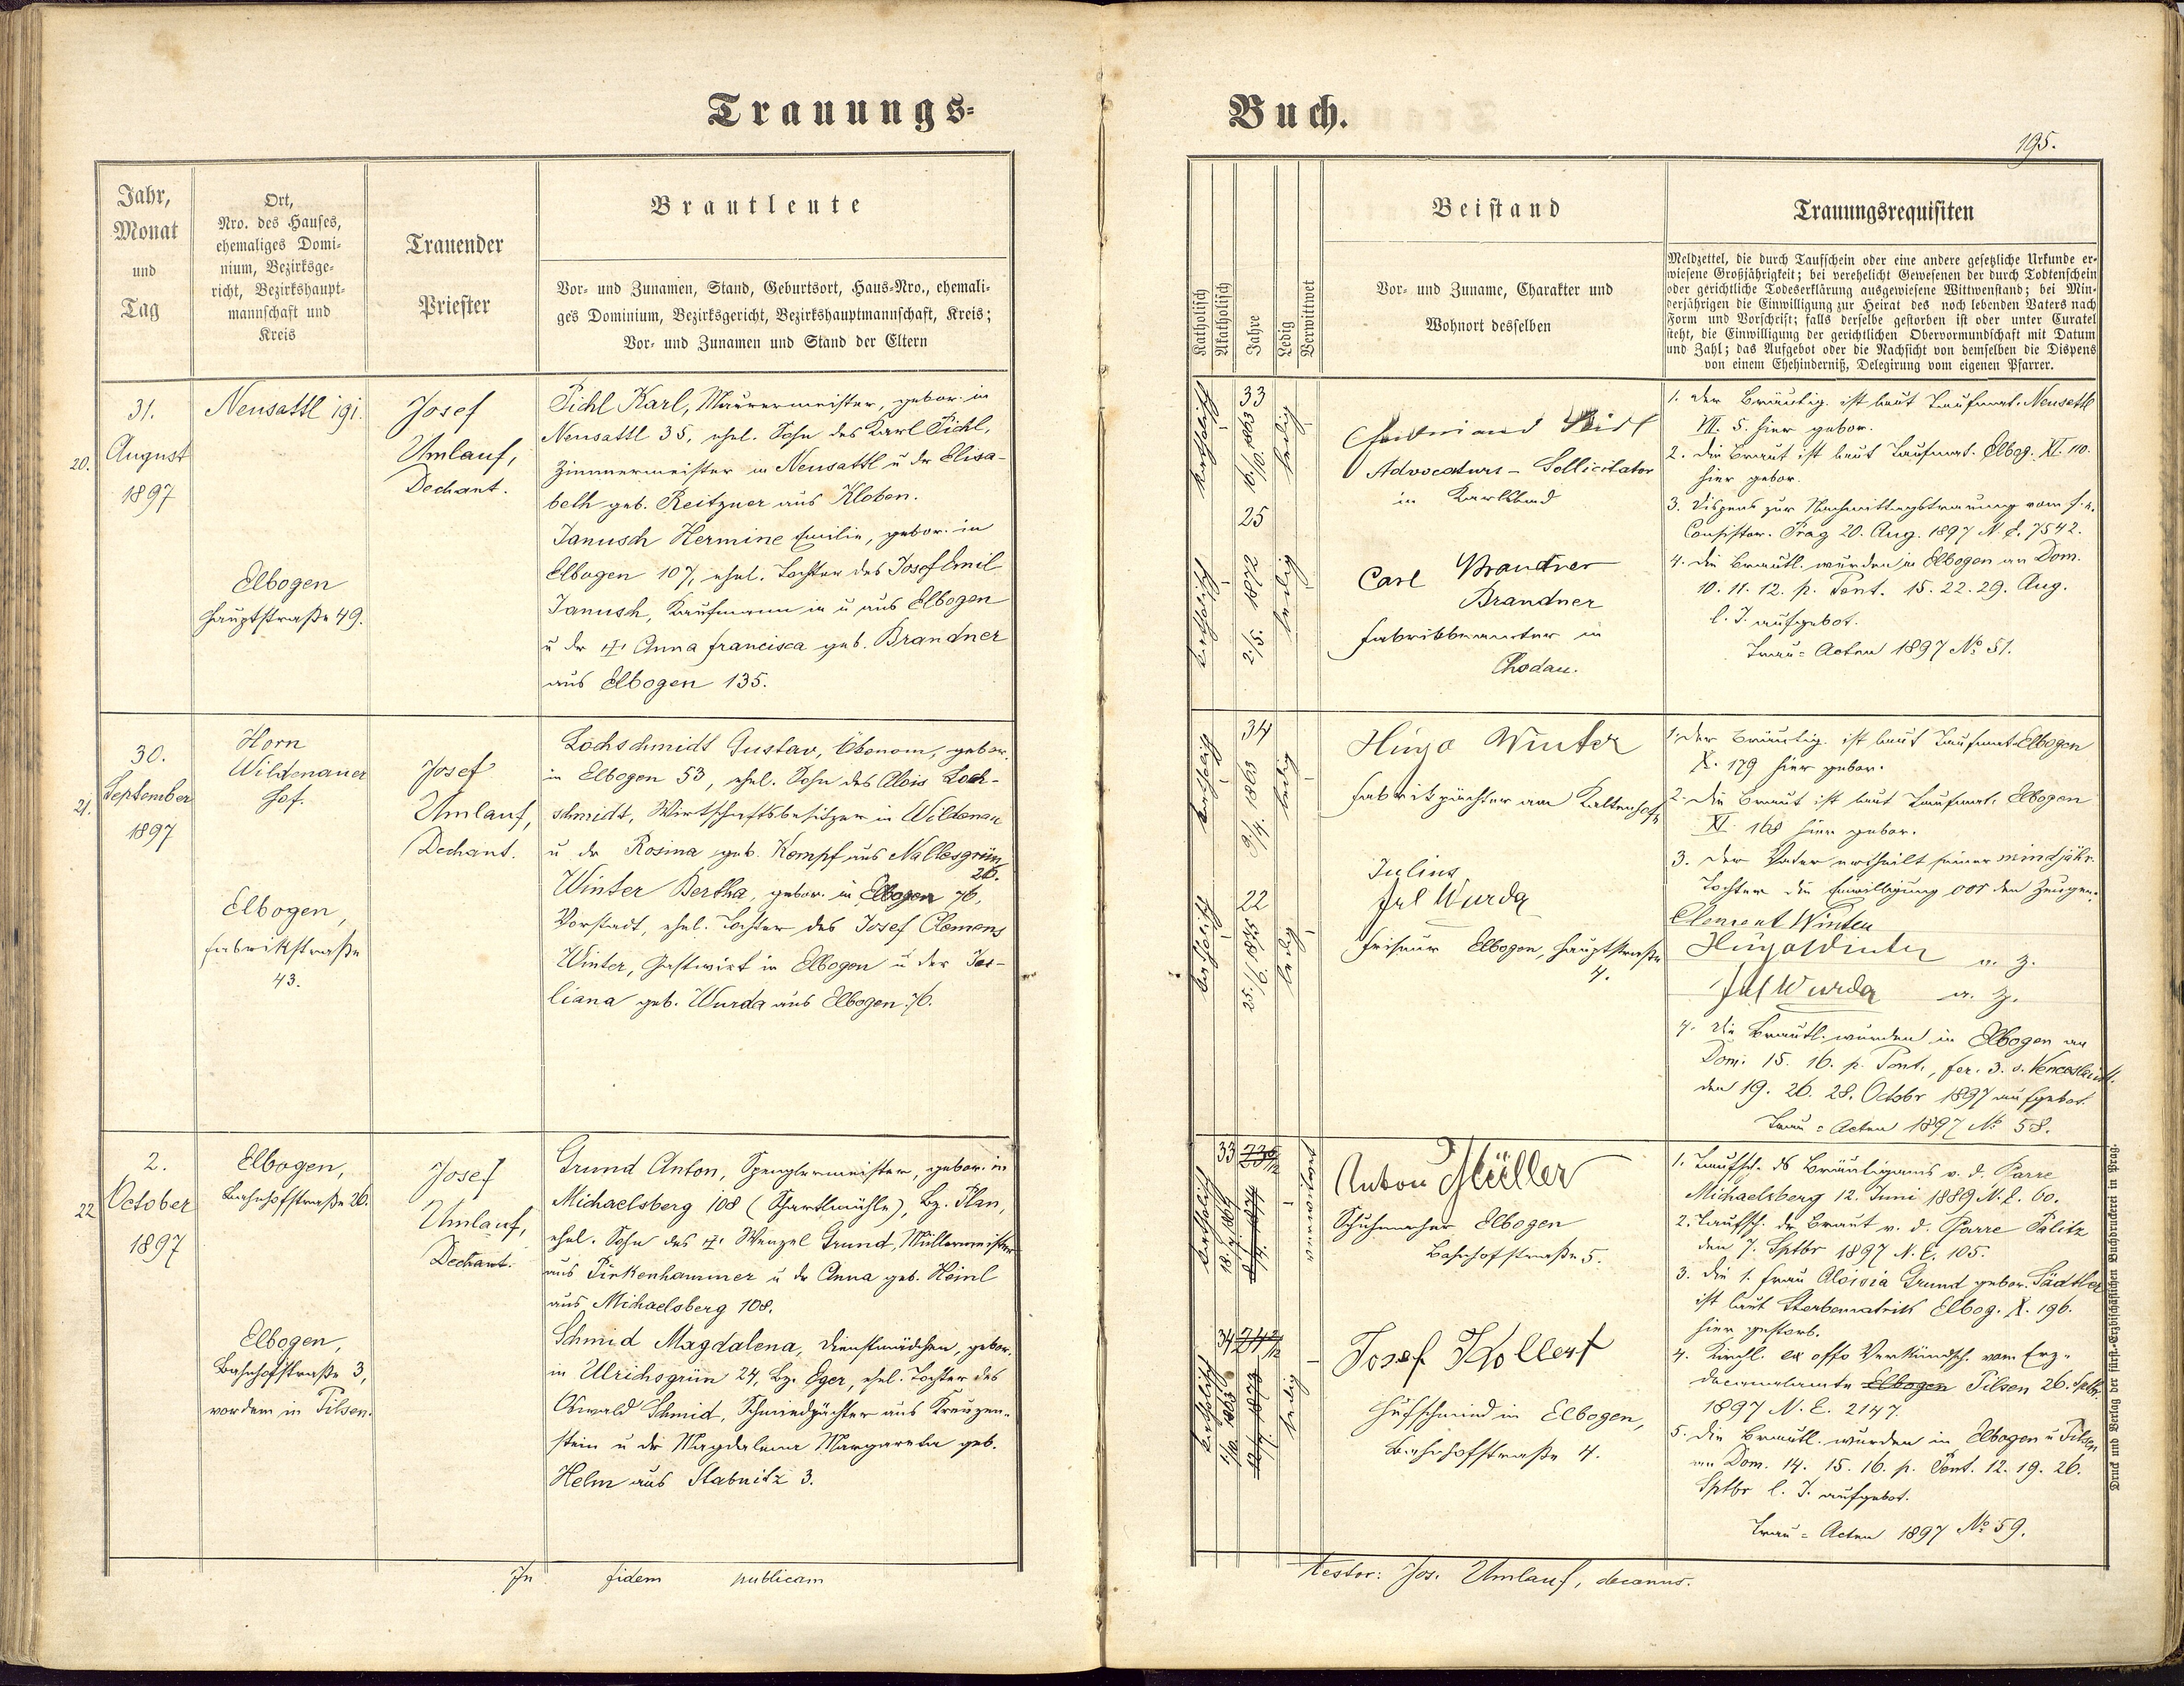 Trauungs-
Jahr,
Monat
und
Tag
Ort,
Nro. des Hauses,
ehemaliges Domi-
nium, Bezirksge-
richt, Bezirkshaupt-
mannschaft und
Kreis
Trauender
Priester
Brautleute
Vor- und Zunamen, Stand, Geburtsort, Haus-Nro., ehemali-
ges Dominium, Bezirksgericht, Bezirkshauptmannschaft, Kreis;
Vor- und Zunamen und Stand der Eltern
20.
31.
August
1897
Neusattl 191.
Elbogen
Hauptstraße 49.
Josef
Umlauf,
Dechant.
Pichl Karl, Maurermeister, gebor. in
Neusattl 35, ehel. Sohn des Karl Pichl,
Zimmermeister in Neusattl u. der Elisa-
beth geb. Reitzner aus Kloben.
Janusch Hermine Emilie, gebor. in
Elbogen 107, ehel. Tochter des Josef Emil
Janusch, Kaufmann in u. aus Elbogen
u. der Anna Francisca geb. Brandner
aus Elbogen 135.
21.
30.
September
1897
Horn
Wildenauer
Hof.
Elbogen,
Fabrikstraße
43.
Josef
Umlauf,
Dechant.
Lochschmidt Gustav, Ökonom, gebor.
in Elbogen 53, ehel. Sohn des Alois Loch-
schmidt, Wirtschaftsbesitzer in Wildenau
u. der Rosina geb. Kempf aus Nallesgrün
26.
Winter Bertha, gebor. in Elbogen 76,
Vorstadt, ehel. Tochter des Josef Clemens
Winter, Gastwirt in Elbogen u. der Ju-
liana geb. Wurda aus Elbogen 76.
22
2.
October
1897
Elbogen,
Bahnhofstraße 26.
Elbogen,
Bahnhofstraße 3,
vordem in Pilsen.
Josef
Umlauf,
Dechant.
Grund Anton, Spenglermeister, gebor. in
Michaelsberg 108 (Schartlmühle), Bz. Plan,
ehel. Sohn des Wenzel Grund, Müllermeister
aus Pirkenhammer u. der Anna geb. Heinl
aus Michaelsberg 108.
Schmid Magdalena, Dienstmädchen, gebor.
in Ulrichsgrün 24, Bz. Eger, ehel. Tochter des
Oswald Schmid, Schmiedpächter aus Kreuzen-
stein u. der Magdalena Margareta geb.
Helm aus Stabnitz 3.
In fidem publicam
Buch.
195.
Katholisch
Akatholisch
Jahre
Ledig
Verwittwet
Beistand
Vor- und Zuname, Charakter und
Wohnort desselben
Trauungsrequisiten
Meldzettel, die durch Taufschein oder eine andere gesetzliche Urkunde er-
wiesene Großjährigkeit; bei verehelicht Gewesenen der durch Todtenschein
oder gerichtliche Todeserklärung ausgewiesene Wittwenstand; bei Min-
derjährigen die Einwilligung zur Heirat des noch lebenden Vaters nach
Form und Vorschrift; falls derselbe gestorben ist oder unter Curatel
steht, die Einwilligung der gerichtlichen Obervormundschaft mit Datum
und Zahl; das Aufgebot oder die Nachsicht von demselben die Dispens
von einem Ehehinderniß, Delegirung vom eigenen Pfarrer.
katholisch
33
16/10. 1863
ledig
katholisch
25
2/5. 1872
ledig
Advocaturs-Sollicitator
in Karlsbad
Carl Brandner
Brandner
Fabriksbeamter in
Chodau.
1. Der Bräutig. ist laut Taufmat. Neusattl
VII. 5. hier gebor.
2. Die Braut ist laut Taufmat. Elbog. XI. 110.
hier gebor.
3. Dispens zur Nachmittagstrauung vom f. e.
Consistor. Prag 20. Aug. 1897 N. E. 7542.
4. Die Brautl. wurden in Elbogen an Dom.
10. 11. 12. p. Pent. 15. 22. 29. Aug.
l. J. aufgebot.
Trau-Acten 1897 No 51.
katholisch
34
9/4. 1863
ledig
katholisch
22
25/6. 1875
ledig
Hugo Winter
Fabrikpächter am Kaltenhof
Julius
Jul Wurda
Friseur Elbogen, Hauptstraße
4.
1. Der Bräutig. ist laut Taufmat. Elbogen
X. 179 hier gebor.
2. Die Braut ist laut Taufmat. Elbogen
XI. 168 hier gebor.
3. Der Vater ertheilt seiner mindjähr.
Tochter die Einwilligung vor den Zeugen:
Clement Winter
Hugo Winter a. Z.
Jul Wurda a. Z.
4. Die Brautl. wurden in Elbogen an
Dom. 15. 16. p. Pent., fer. 3. s. Venceslai
den 19. 26. 28. Octobr 1897 aufgebot.
Trau-Acten 1897 No 58.
katholisch
33
katholisch
34
ledig
Anton Müller
Schuhmacher Elbogen
Bahnhofstraße 5.
Josef Kollert
Hufschmied in Elbogen,
Bahnhofstraße 4.
1. Taufsch. des Bräutigams v. d. Pfarre
Michaelsberg 12. Juni 1889 N. E. 60.
2. Taufsch. der Braut v. d. Pfarre Palitz
den 7. Sptbr 1897 N. E. 105.
3. Die 1. Frau Aloisia Grund gebor. Sädtler
ist laut Sterbematrik Elbog. X. 196.
hier gestorb.
4. Kirchl. ex offo Verkündsch. vom Erz-
decanalamte Elbogen Pilsen 26. Sptbr.
1897 N. E. 2147.
5. Die Brautl. wurden in Elbogen u. Pilsen
an Dom. 14. 15. 16. p. Pent. 12. 19. 26.
Sptbr l. J. aufgebot.
Trau-Acten 1897 No 59.
testor: Jos. Umlauf, decanus.
Druck und Verlag der fürst.-Erzbischöflichen Buchdruckerei in Prag.